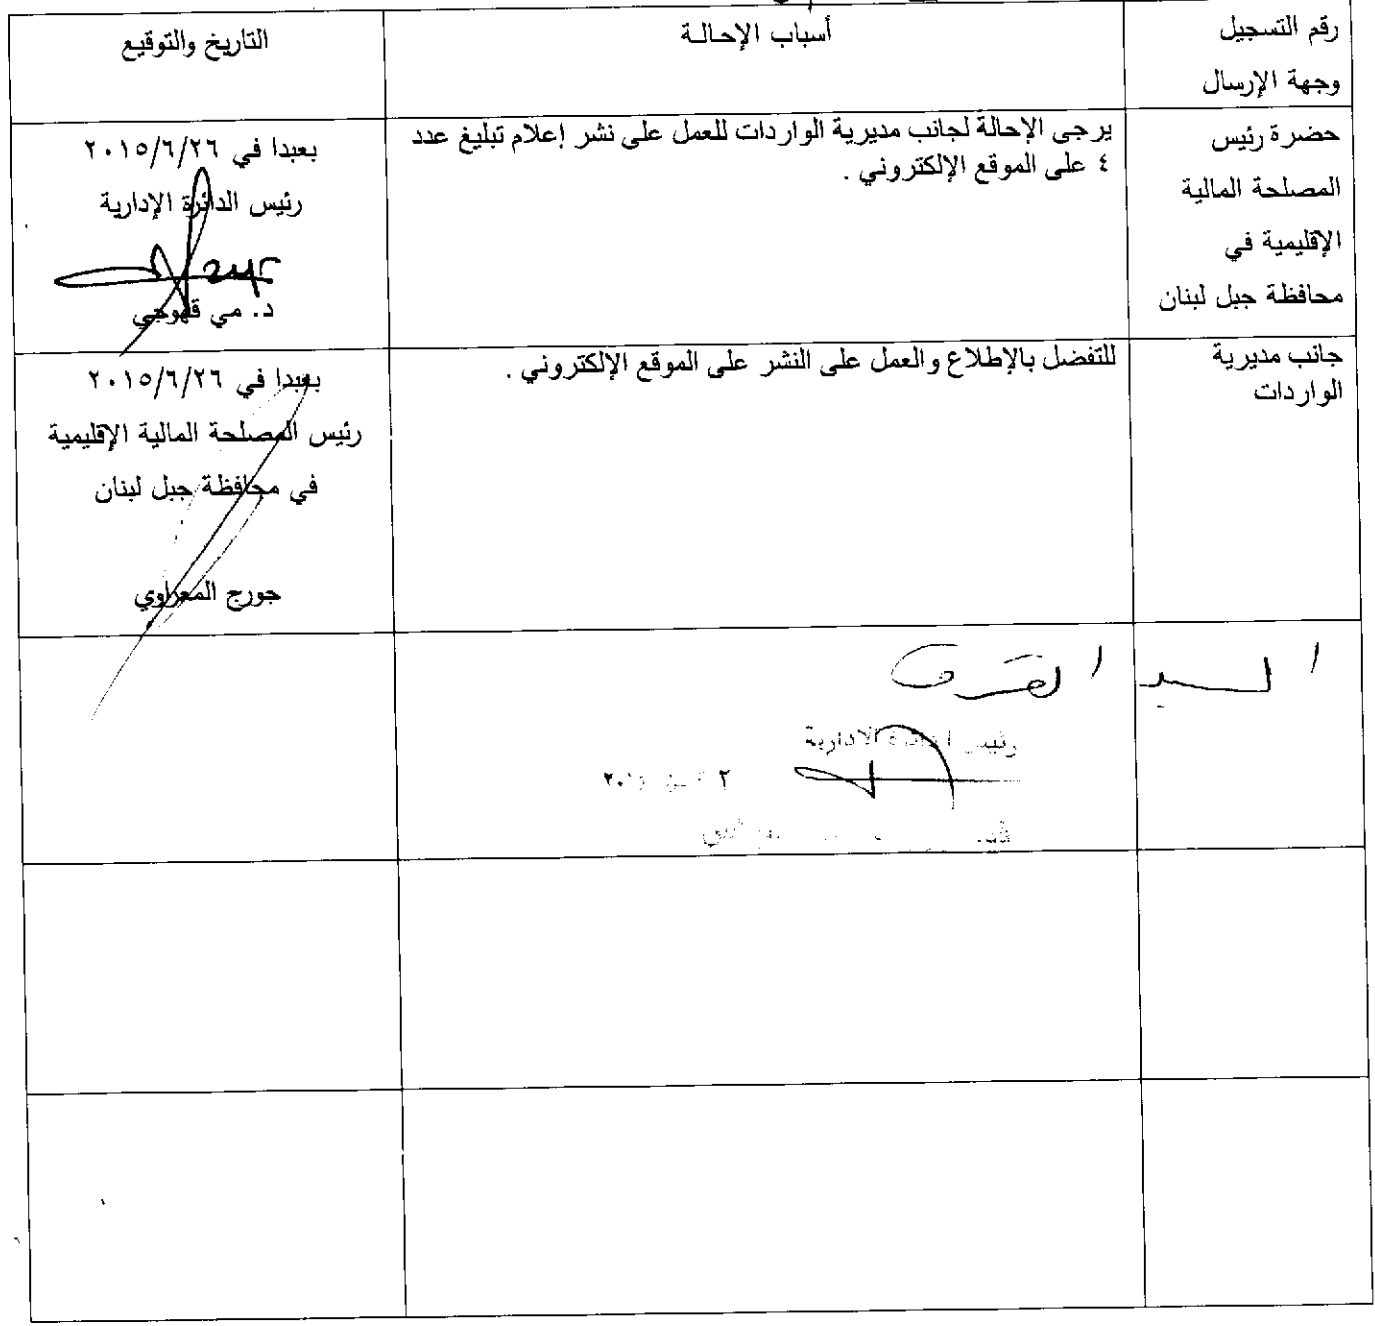 رقم التسجيل
وجهة الإرسال
أسباب الإحالة
التاريخ والتوقيع
حضرة رئيس
المصلحة المالية
الإقليمية في
محافظة جبل لبنان
يرجى الإحالة لجانب مديرية الواردات للعمل على نشر إعلام تبليغ عدد
٤ على الموقع الإلكتروني .
بعبدا في ٢٠١٥/٦/٢٦
رئيس الدائرة الإدارية
د. مي قهوجي
جانب مديرية
الواردات
للتفضل بالإطلاع والعمل على النشر على الموقع الإلكتروني .
بعبدا في ٢٠١٥/٦/٢٦
رئيس المصلحة المالية الإقليمية
في محافظة جبل لبنان
جورج المعراوي
السيد
رئيس الادارية
٢